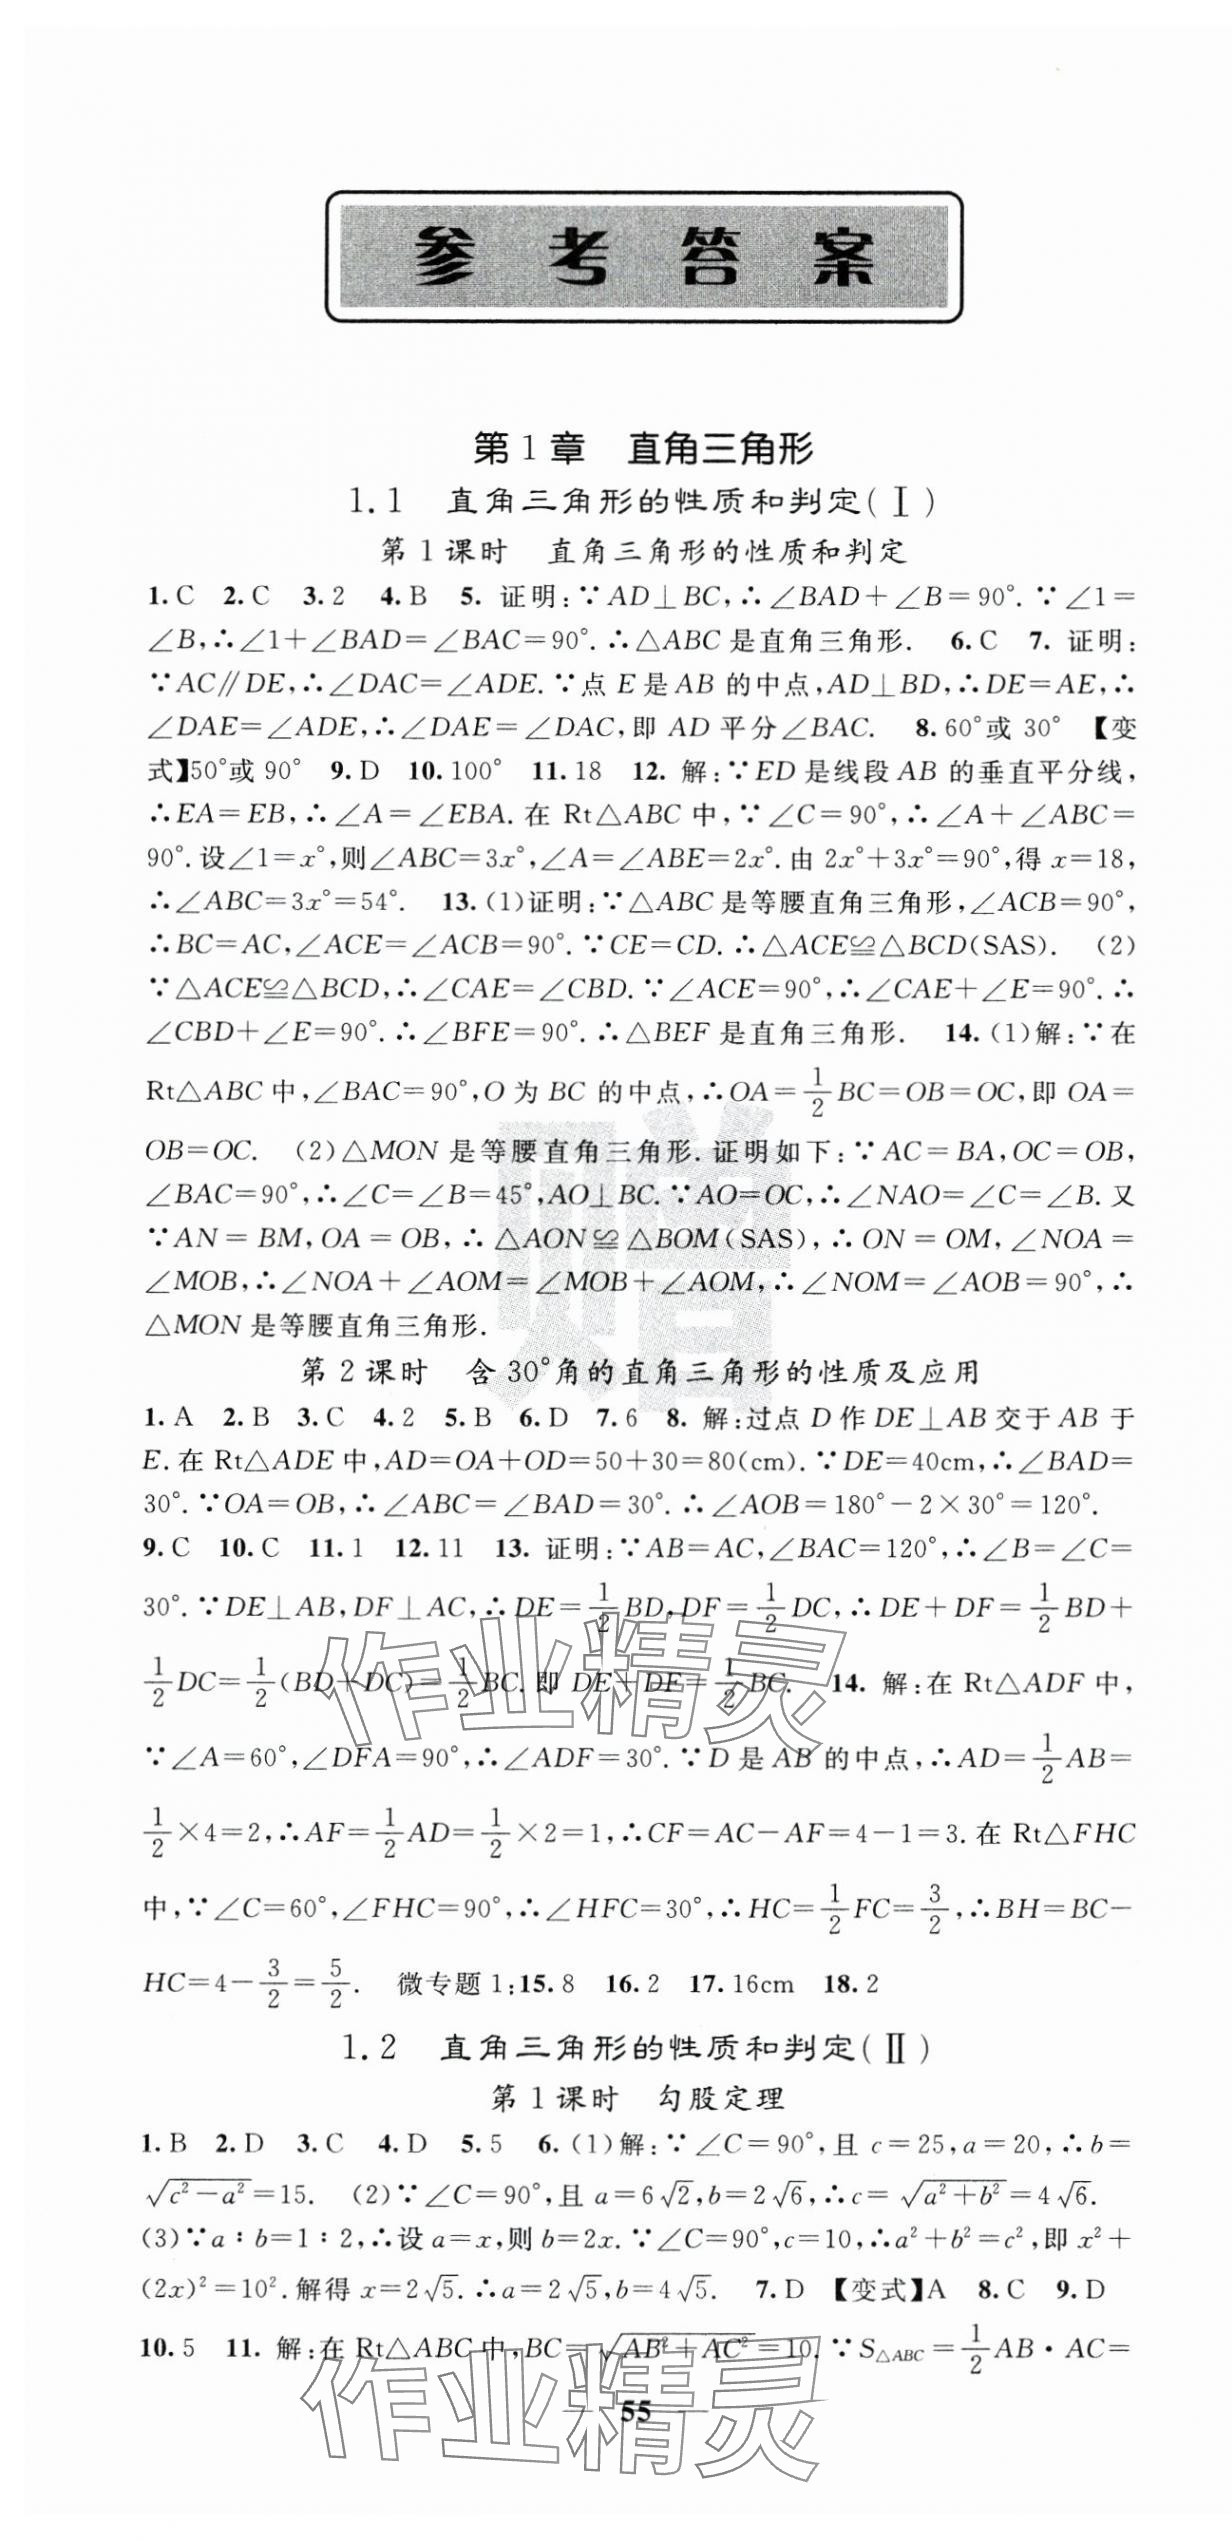 参考答案
第1章 直角三角形
1.1 直角三角形的性质和判定(Ⅰ)
第1课时 直角三角形的性质和判定
1.C 2.C 3.2 4.B 5. 证明:∵AD⊥BC,∴∠BAD+∠B=90°.∵∠1=
∠B,∴∠1+∠BAD=∠BAC=90°.∴△ABC是直角三角形. 6.C 7. 证明:
∵AC∥DE,∴∠DAC=∠ADE.∵点E是AB的中点,AD⊥BD,∴DE=AE,∴
∠DAE=∠ADE,∴∠DAE=∠DAC,即AD平分∠BAC. 8.60°或30° 【变
式】50°或90° 9.D 10.100° 11.18 12. 解:∵ED是线段AB的垂直平分线,
∴EA=EB,∴∠A=∠EBA.在Rt△ABC中,∵∠C=90°,∴∠A+∠ABC=
90°.设∠1=x°,则∠ABC=3x°,∠A=∠ABE=2x°.由2x°+3x°=90°,得x=18,
∴∠ABC=3x°=54°. 13.(1)证明:∵△ABC是等腰直角三角形,∠ACB=90°,
∴BC=AC,∠ACE=∠ACB=90°.∵CE=CD.∴△ACE≌△BCD(SAS). (2)
∵△ACE≌△BCD,∴∠CAE=∠CBD.∵∠ACE=90°,∴∠CAE+∠E=90°.∴
∠CBD+∠E=90°.∴∠BFE=90°.∴△BEF是直角三角形. 14.(1)解:∵在
Rt△ABC中,∠BAC=90°,O为BC的中点,∴OA=1/2BC=OB=OC,即OA=
OB=OC. (2)△MON是等腰直角三角形.证明如下:∵AC=BA,OC=OB,
∠BAC=90°,∴∠C=∠B=45°,AO⊥BC.∵AO=OC,∴∠NAO=∠C=∠B.又
∵AN=BM,OA=OB,∴△AON≌△BOM(SAS),∴ON=OM,∠NOA=
∠MOB,∴∠NOA+∠AOM=∠MOB+∠AOM,∴∠NOM=∠AOB=90°,∴
△MON是等腰直角三角形.
赠
第2课时 含30°角的直角三角形的性质及应用
1.A 2.B 3.C 4.2 5.B 6.D 7.6 8. 解:过点D作DE⊥AB交于AB于
E.在Rt△ADE中,AD=OA+OD=50+30=80(cm).∵DE=40cm,∴∠BAD=
30°.∵OA=OB,∴∠ABC=∠BAD=30°.∴∠AOB=180°-2×30°=120°.
9.C 10.C 11.1 12.11 13. 证明:∵AB=AC,∠BAC=120°,∴∠B=∠C=
30°.∵DE⊥AB,DF⊥AC,∴DE=1/2BD,DF=1/2DC,∴DE+DF=1/2BD+
1/2DC=1/2(BD+DC)=1/2BC.即DE+DE=1/2BC. 14. 解:在Rt△ADF中,
作业精灵
∵∠A=60°,∠DFA=90°,∴∠ADF=30°.∵D是AB的中点,∴AD=1/2AB=
1/2×4=2,∴AF=1/2AD=1/2×2=1,∴CF=AC-AF=4-1=3.在Rt△FHC
中,∵∠C=60°,∠FHC=90°,∴∠HFC=30°,∴HC=1/2FC=3/2,∴BH=BC-
HC=4-3/2=5/2. 微专题1:15.8 16.2 17.16cm 18.2
1.2 直角三角形的性质和判定(Ⅱ)
第1课时 勾股定理
1.B 2.D 3.C 4.D 5.5 6.(1)解:∵∠C=90°,且c=25,a=20,∴b=
√(c²-a²)=15. (2)∵∠C=90°,且a=6√2,b=2√6,∴c=√(a²+b²)=4√6.
(3)∵a∶b=1∶2,∴设a=x,则b=2x.∵∠C=90°,c=10,∴a²+b²=c²,即x²+
(2x)²=10².解得x=2√5.∴a=2√5,b=4√5. 7.D 【变式】A 8.C 9.D
10.5 11. 解:在Rt△ABC中,BC=√(AB²+AC²)=10.∵S△ABC=1/2AB·AC=
作业精灵
55